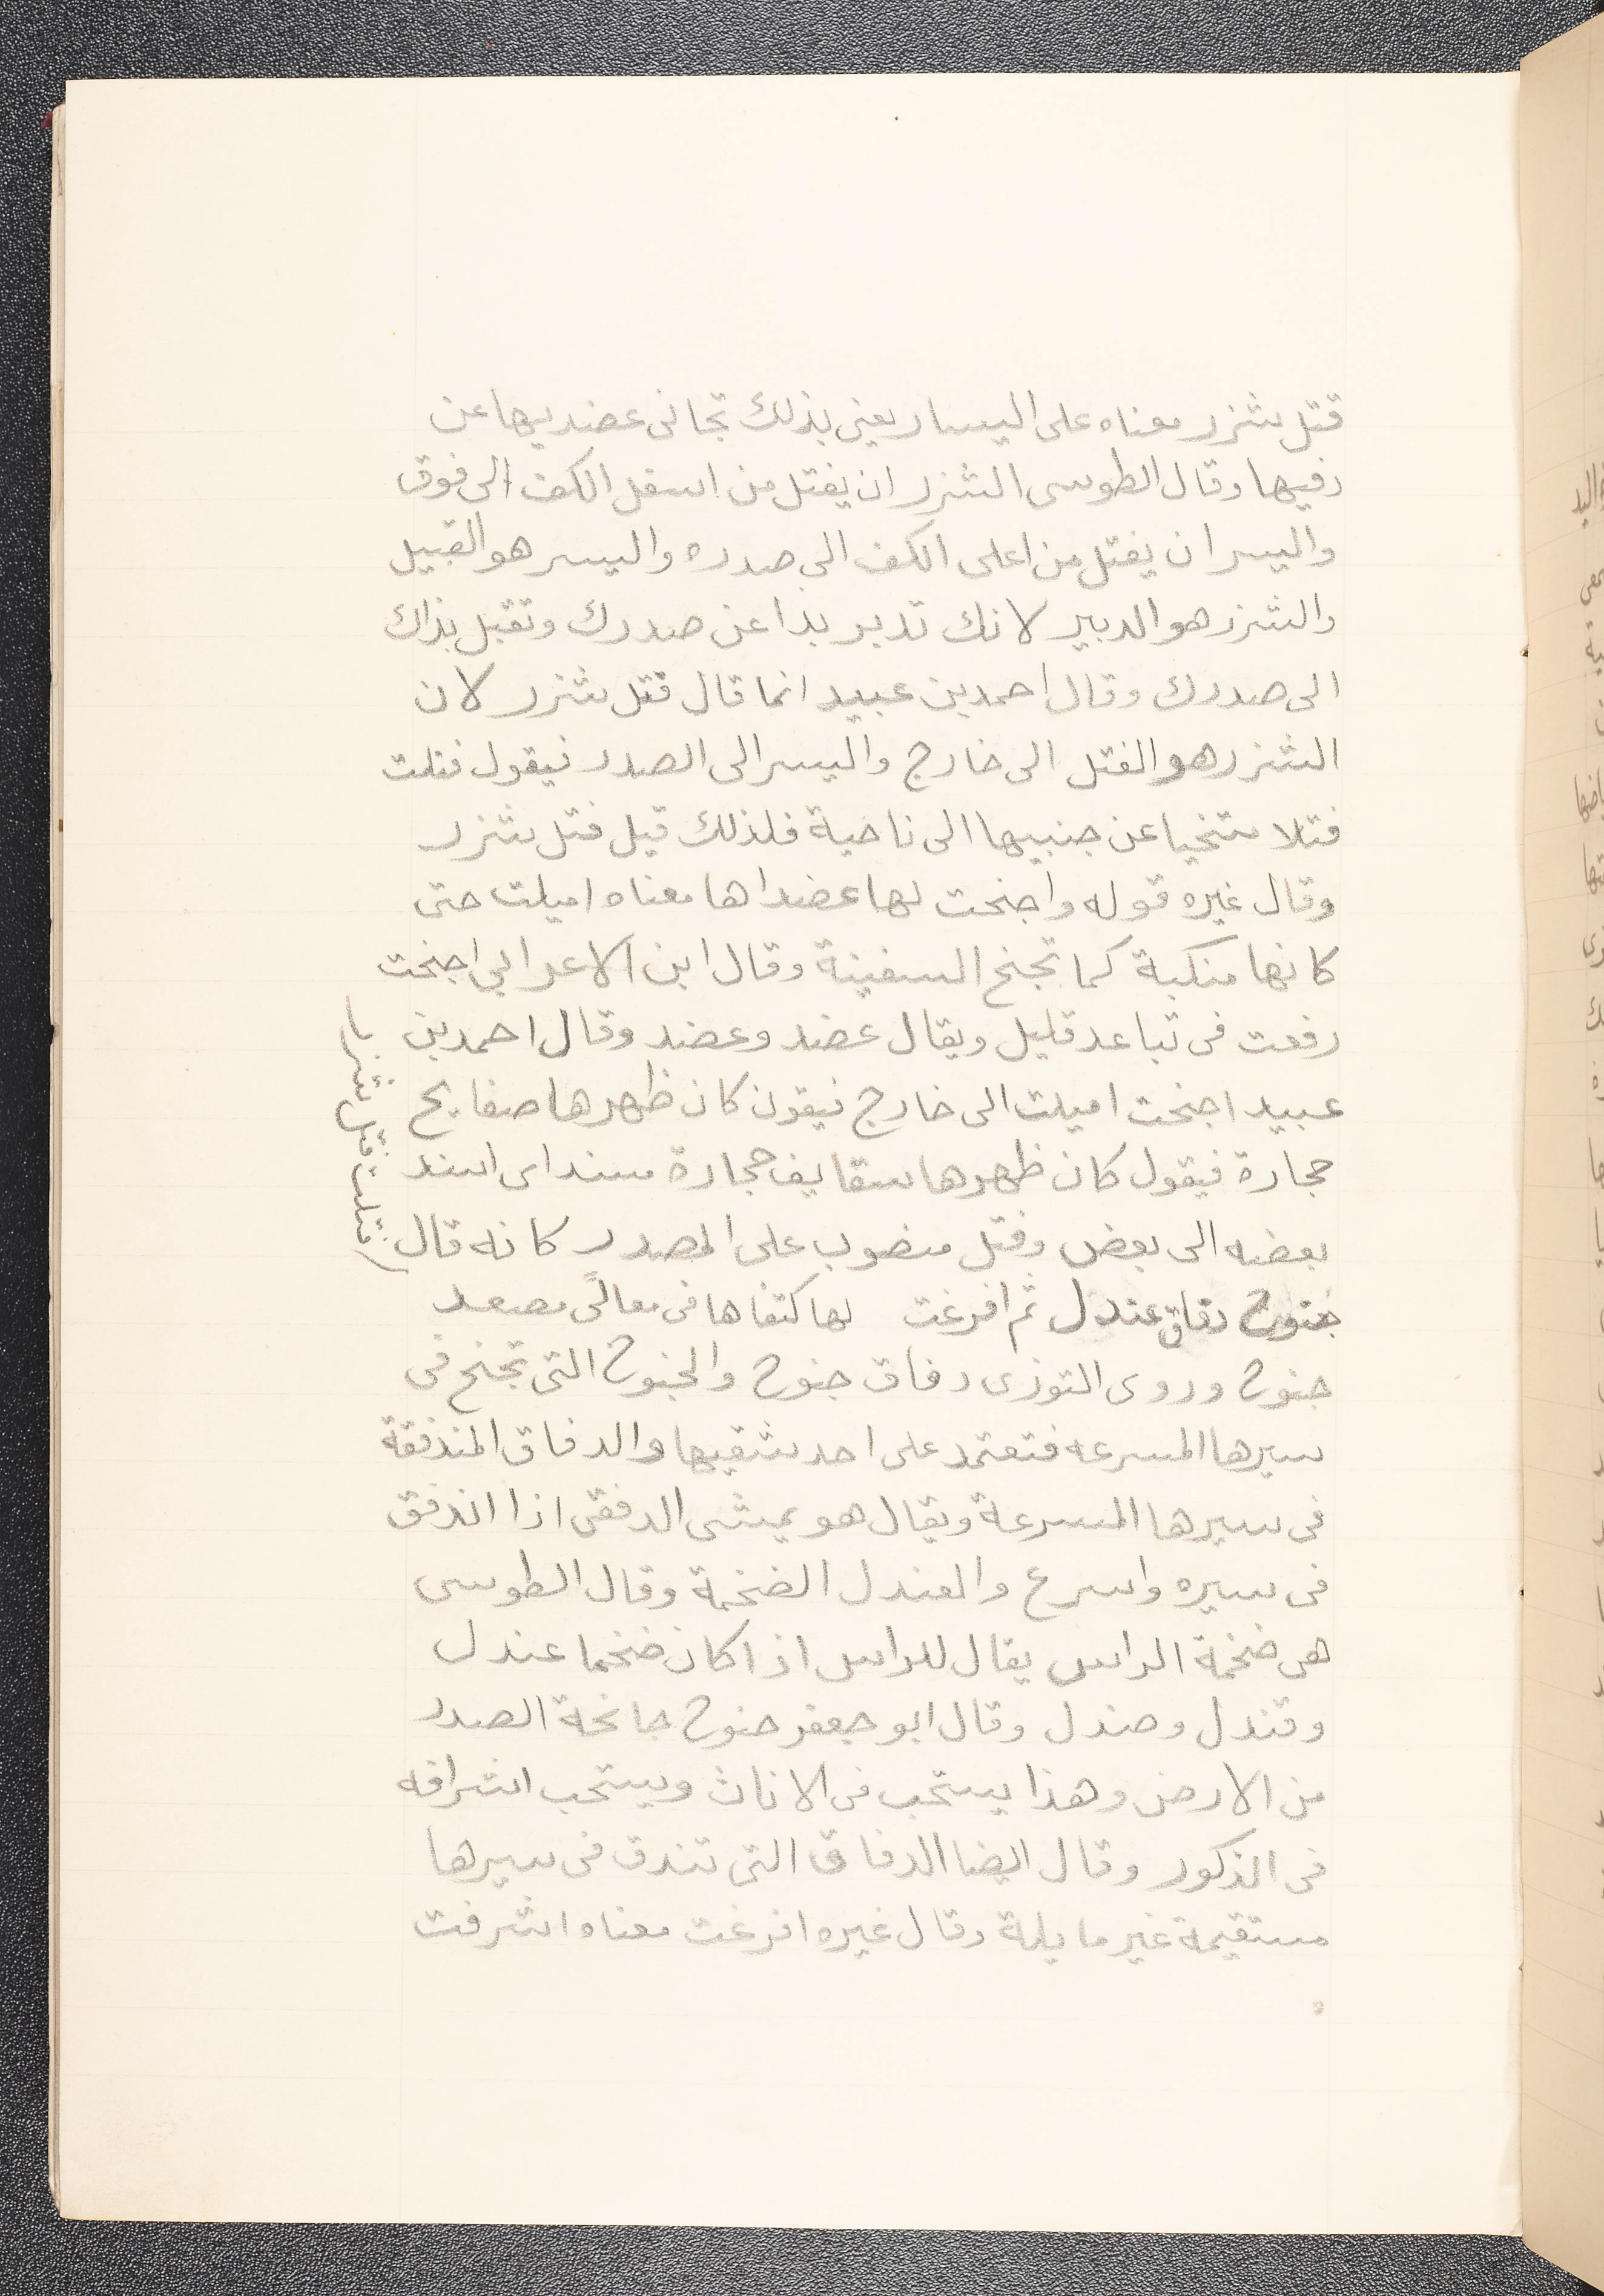 فتل شزر معناه على اليسار يعني بذلك تجافى عضديها عن
زفيها وقال الطوسى الشزر ان يفتل من اسفل الكف الى فوق
واليسر ان يفتل من اعلى الكف الى صدره واليسر هو القبيل
والشزر هو الدبير لانك تدبر بذا عن صدرك وتقبل بذاك
الى صدرك وقال احمد بن عبيد انما قال فتل شزر لان
الشزر هو الفتل الى خارج واليسر الى الصدر فيقول فتلت
فتلا متنحيا عن جنبيها الى ناحية فلذلك قيل فتل شزر
وقال غيره قوله واجنحت لها عضداها معناه اميلت حتى
كانها منكبة كما تجنح السفينة وقال ابن الاعرابي اجنحت
رفعت فى تباعد قليل ويقال عضد وعضد وقال احمد بن
عبيد اجنحت اميلت الى خارج فيقول كان ظهرها صفايح
حجارة فيقول كان ظهرها سقايف حجارة مسند اى اسند
بعضه الى بعض وفتل منصوب على المصدر كانه قال
فتلت فتل شزر با
جنوح دفاق عندل ثم افرغت لها كتفاها فى معالًى مصعد
جنوح وروى التوزى دفاق جنوح والجنوح التى تجنح فى
سيرها المسرعه فتعتمد على احد شقيها والدفاق المندفقة
فى سيرها المسرعة ويقال هو يمشى الدفقى اذا اندفق
فى سيره واسرع والعندل الضخمة وقال الطوسى
هى ضخمة الراس يقال للراس اذا كان ضخما عندل
وقندل وصندل وقال ابو جعفر جنوح جانحة الصدر
من الارض وهذا يستحب فى الاناث ويستحب اشرافه
فى الذكور وقال ايضا الدفاق التى تندق فى سيرها
مستقيمة غير مايلة وقال غيره افرغت معناه اشرفت